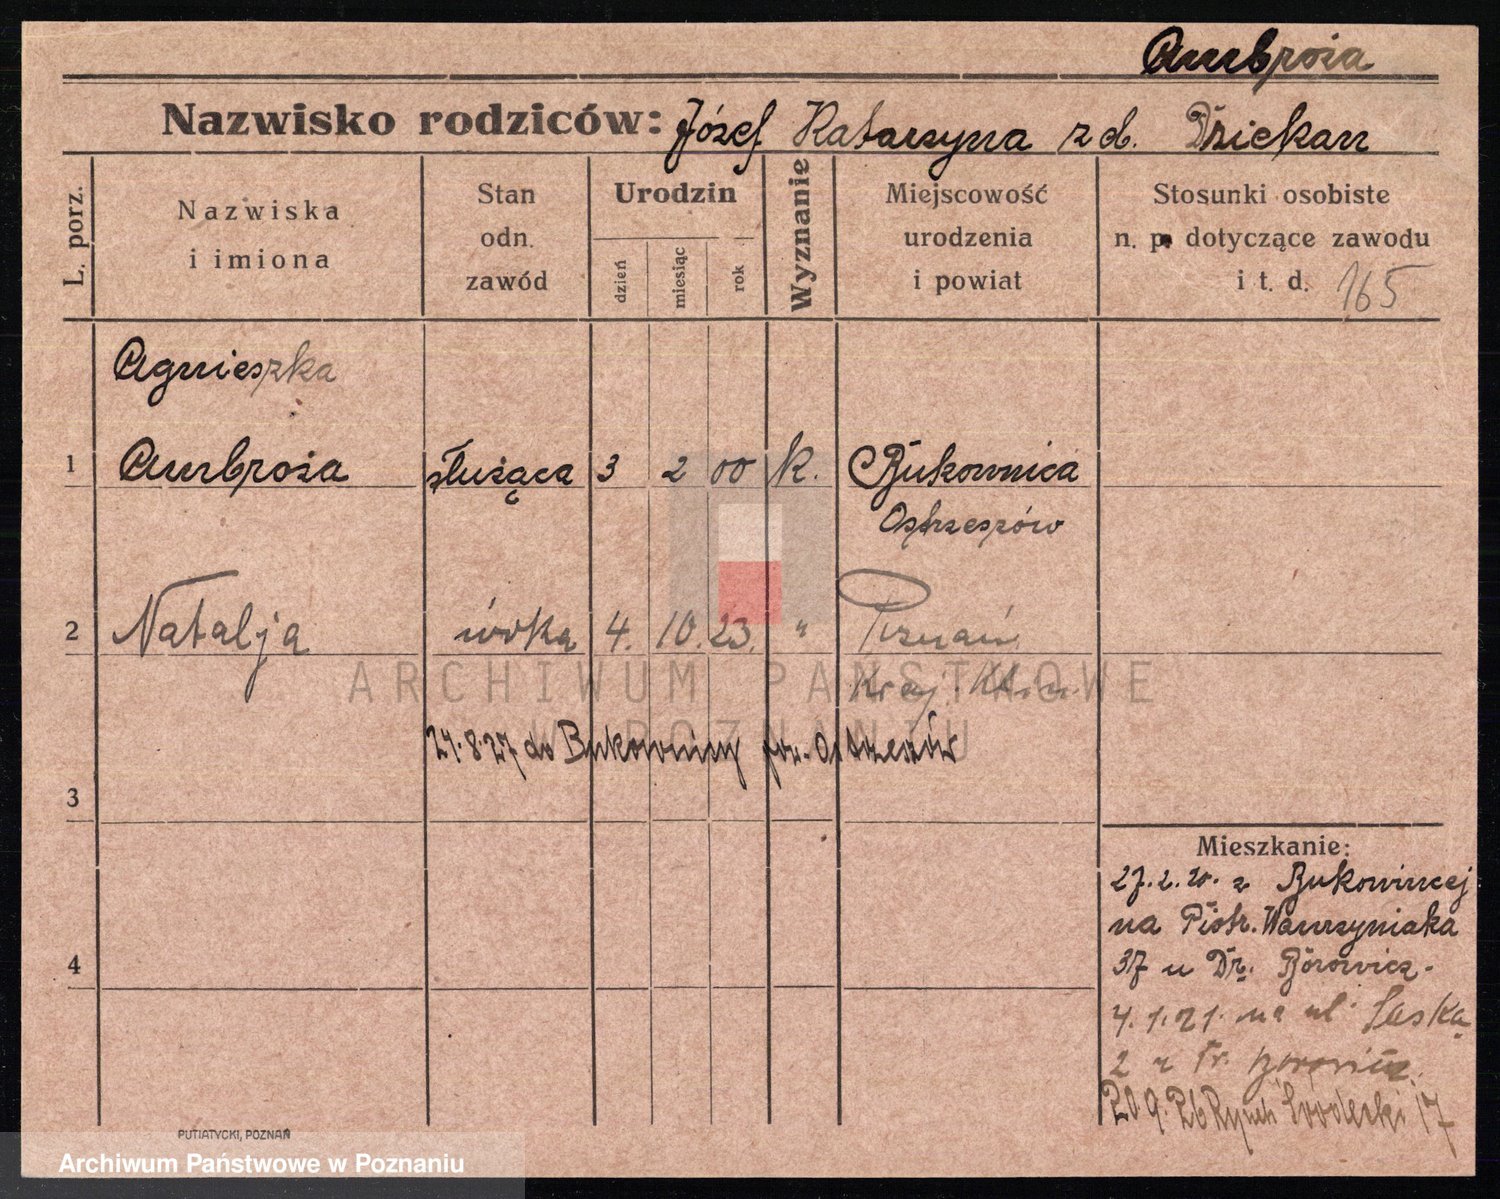 Ambroża
Nazwisko rodziców: Józef Katarzyna z d. Dziekan
L. porz.
Nazwiska
i imiona
Stan
odn.
zawód
Urodzin
dzień
miesiąc
rok
Wyznanie
Miejscowość
urodzenia
i powiat
Stosunki osobiste
n. p. dotyczące zawodu
i t. d. 165
Agnieszka
1 Ambroża służąca 3 2 00 k. Bukownica
Ostrzeszów
2 Natalja córka 4. 10. 23. " Poznań
Kraj. Klin.
24.8.27 do Bukownicy pow. Ostrzeszów
3
Mieszkanie:
27.2.20. z Bukownicej
na Piotr. Wawrzyniaka
4
37 u Dr. Borowicz.
4.1.21. na ul. Łaską
2 u Dr. Borowicz.
20.9.26 Rynek Śródecki 17
PUTIATYCKI, POZNAŃ
ARCHIWUM PAŃSTWOWE
W POZNANIU
Archiwum Państwowe w Poznaniu